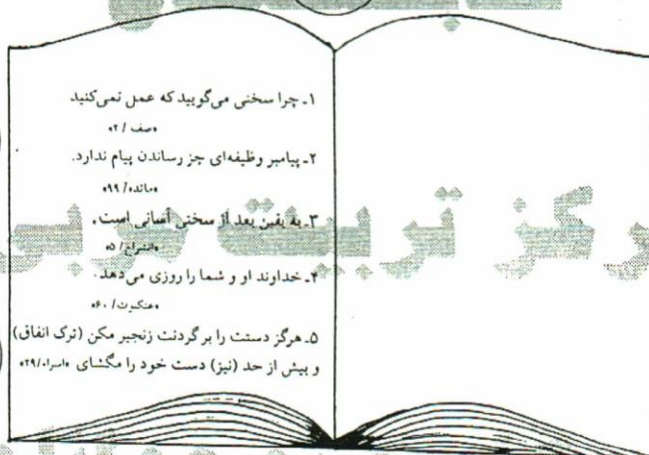 ۱ـ چرا سخنی می‌گویید که عمل نمی‌کنید
«صف / ۲»
۲ـ پیامبر وظیفه‌ای جز رساندن پیام ندارد.
«مائده / ۹۹»
۳ـ به یقین بعد از سختی آسانی است.
«انشراح / ۵»
۴ـ خداوند او و شما را روزی می‌دهد.
«عنکبوت / ۶۰»
۵ـ هرگز دستت را بر گردنت زنجیر مکن (ترک انفاق)
و بیش از حد (نیز) دست خود را مگشای «اسراء/۲۹»
مرکز تربیت مربی